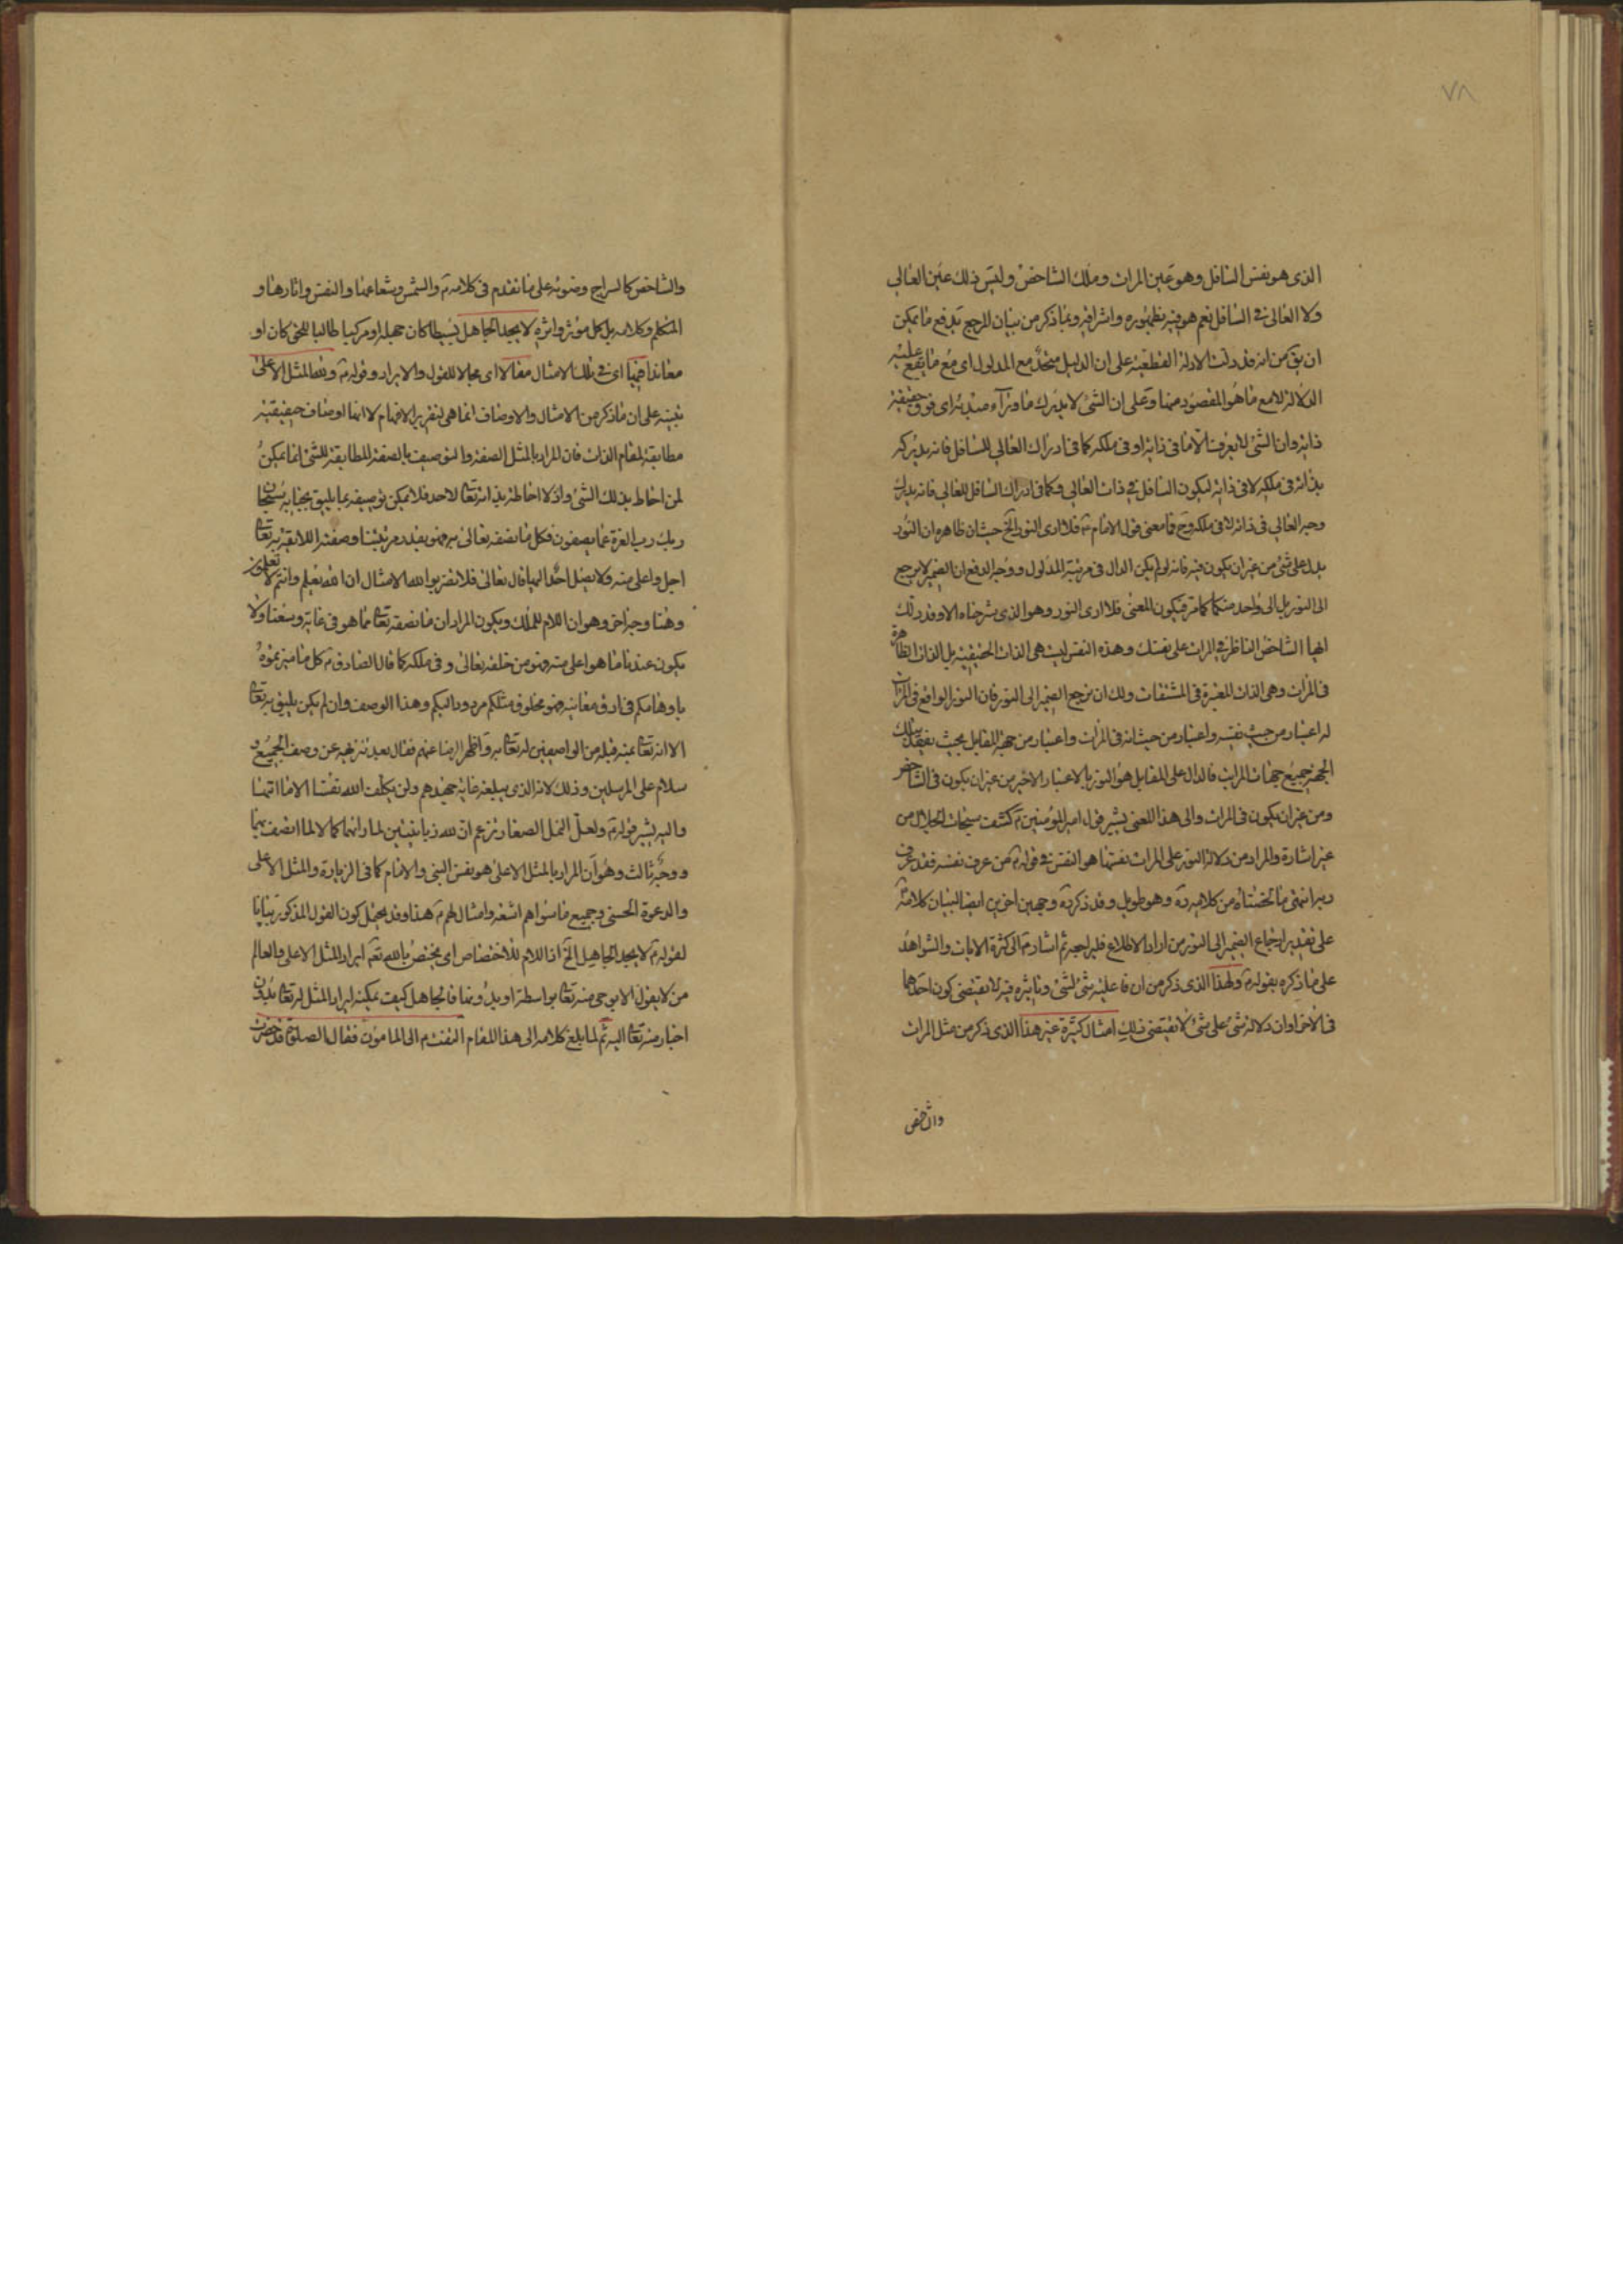 ٧٨
الذى هو نفس السافل وهو عين المرات وملك الشاخص وليس ذلك عين العالى
ولا العالى فى السافل نعم هو فيه بظهوره واشراقه وبما ذكر من بيان المرجع يدفع ما يمكن
ان يق من انه قد دلت الادلة القطعية على ان الدليل متحد مع المدلول اى مع ما يقع عليه
الدلالة لا مع ما هو المقصود منها وعلى ان الشئ لا يدرك ما وراء مبدئه اى فوق حقيقة
ذاته وان الشئ لا يعرف الا ما فى ذاته او فى ملكه كما فى ادراك العالى للسافل فانه يدركه
بذاته فى ملكه لا فى ذاته ليكون السافل فى ذات العالى وكما فى ادراك السافل للعالى فانه يدرك
وجه العالى فى ذاته لا فى ملكه وح فما معنى قول الامام ع فلا ارى النور الخ حيث ان ظاهره ان النور
يدل على شئ من غير ان يكون فيه فانه لو لم يكن الدال فى مرتبة المدلول ووجه الدفع ان الضمير لا يرجع
الى النور بل الى واحد منكما كما مر فيكون المعنى فلا ارى النور وهو الذى شرحناه الا وقد دلك
ايها الشاخص الناظر فى المرات على نفسك وهذه النفس ليست هى الذات الحقيقية بل الذات الظاهرة
فى المرات وهى الذات المعتبرة فى المشتقات ولك ان ترجع الضمير الى النور فان النور الواقع فى المرات
له اعتبار من حيث نفسه واعتبار من حيث انه فى المرات واعتبار من جهة المقابل بحيث يفقد بتلك
الجهة جميع جهات المرات فالدال على المقابل هو النور بالاعتبار الاخير من غير ان يكون فى الشاخص
ومن غير ان يكون فى المرات والى هذا المعنى يشير قول امير المؤمنين ع كشف سبحات الجلال من
غير اشارة والمراد من دلالة النور على المرات نفسها هو النفس فى قوله ع من عرف نفسه فقد عرف
ربه انتهى ما لخصناه من كلامه ره وهو طويل وقد ذكر ره وجهين اخرين ايضا لبيان كلامه ع
على تقدير ارجاع الضمير الى النور من اراد الاطلاع فليراجعه ثم اشار ع الى كثرة الايات والشواهد
على ما ذكره بقوله ع ولهذا الذى ذكر من ان فاعلية شئ لشئ وتاثيره فيه لا يقتضى كون احدهما
فى الاخر او ان دلالة شئ على شئ لا يقتضى ذلك امثال كثيرة غير هذا الذى ذكر من مثل المرات
والشاخص
والشاخص كالسراج وضوئه على ما تقدم فى كلامه ع والشمس وشعاعها والنفس واثارها و
المتكلم وكلامه بل كل مؤثر واثره لا يجد الجاهل بسيطا كان جهله او مركبا طالبا للحق كان او
معاندا فيها اى فى تلك الامثال مقالا اى مجالا للقول والايراد وقوله ع ولله المثل الاعلى
تنبيه على ان ما ذكر من الامثال والاوصاف انما هى لتقريب الافهام لا انها اوصاف حقيقية
مطابقة لمقام الذات فان المراد بالمثل الصفة والتوصيف بالصفة المطابقة للشئ انما يمكن
لمن احاط بذلك الشئ واذ لا احاطة بذاته تعا لاحد فلا يمكن توصيفه بما يليق بجنابه سبحان
ربك رب العزة عما يصفون فكل ما نصفه تعالى به فهو بقدر مرتبتنا وصفته اللائقة به تعا
اجل واعلى منه ولا يصل احد اليها قال تعالى فلا تضربوا لله الامثال ان الله يعلم وانتم لا تعلمون
وهنا وجه اخر وهو ان اللام للملك ويكون المراد ان ما نصفه تعا مما هو فى غاية وسعنا ولا
يكون عندنا ما هو اعلى منه فهو من خلقه تعالى وفى ملكه كما قال الصادق ع كل ما ميزتموه
باوهامكم فى ادق معانيه فهو مخلوق مثلكم مردود اليكم وهذا الوصف وان لم يكن يليق به تعا
الا انه تعا بمنه قبله من الواصفين له تعا به واظهر الرضا عنهم فقال بعد تنزيهه عن وصف الجميع و
سلام على المرسلين وذلك لانه الذى يبلغه غاية جهدهم ولن يكلف الله نفسا الا ما اتيها
واليه يشير قوله ع ولعل النمل الصغار تزعم ان لله زبانيتين لما راتهما كمالا لما اتصف بهما
ووجه ثالث وهو ان المراد بالمثل الاعلى هو نفس النبى والامام كما فى الزيارة والمثل الاعلى
والدعوة الحسنى وجميع ما سواهم اشعة وامثال لهم ع هذا وقد يحتمل كون القول المذكور بيانا
لقوله ع لا يجد الجاهل الخ اذ اللام للاختصاص اى يختص بالله تعه ايراد المثل الاعلى والعالم
من لا يقول الا بوحى منه تعا بواسطة او بدونها فالجاهل كيف يمكنه ايراد المثل له تعا بدون
اخبار منه تعا اليه ثم لما بلغ كلامه الى هذا المقام التفت ع الى المامون فقال الصلوة قد حضرت